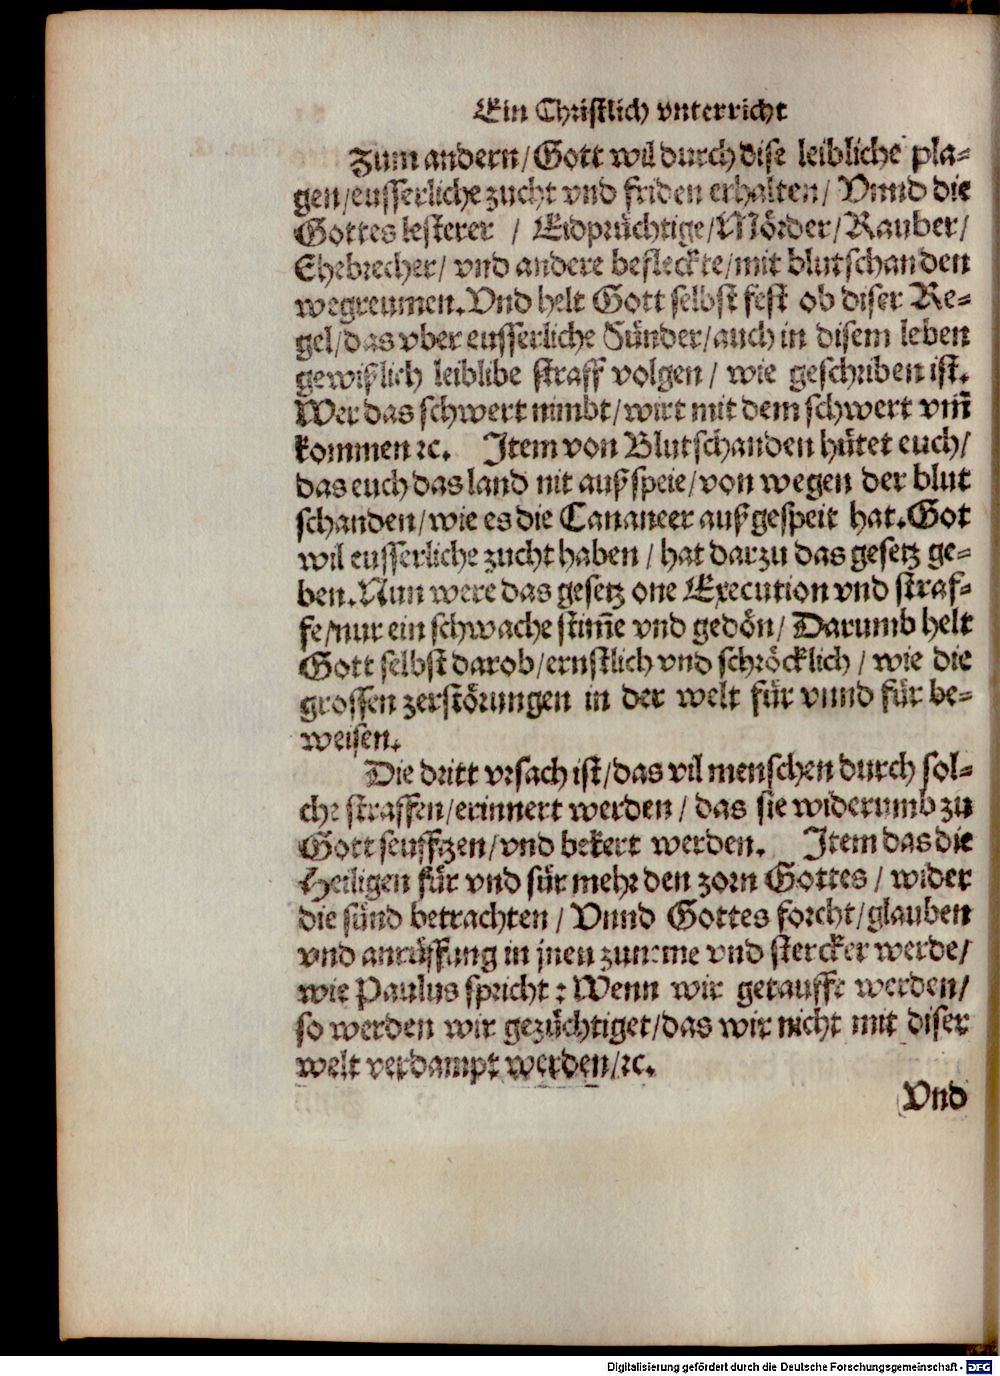 Ein Christlich vnterricht
Zum andern/Gott wil durch dise leibliche pla⸗
gen/eusserliche zucht vnd friden erhalten/ Vnnd die
Gottes lesterer / Eidprüchtige/Mörder/Rauber/
Ehebrecher/ vnd andere befleckte/mit blutschanden
wegreumen. Vnd helt Gott selbst fest ob diser Re⸗
gel/das vber eusserliche Sünder/auch in disem leben
gewißlich leiblibe straff volgen/ wie geschriben ist.
Wer das schwert nimbt/wirt mit dem schwert vm̃
kommen ꝛc. Item von Blutschanden hütet euch/
das euch das land nit außspeie/von wegen der blut
schanden/wie es die Cananeer außgespeit hat. Got
wil eusserliche zucht haben / hat darzu das gesetz ge⸗
ben. Nun were das gesetz one Execution vnd straf⸗
fe/nur ein schwache stim̃e vnd gedön/ Darumb helt
Gott selbst darob/ernstlich vnd schröcklich / wie die
grossen zerstörungen in der welt für vnnd für be⸗
weisen.
Die dritt vrsach ist/das vil menschen durch sol⸗
che straffen/erinnert werden / das sie widerumb zu
Gott seufftzen/vnd bekert werden. Item das die
Heiligen für vnd für mehr den zorn Gottes / wider
die sünd betrachten / Vnnd Gottes forcht/glauben
vnd anrüffung in jnen zuneme vnd stercker werde/
wie Paulus spricht: Wenn wir getauffe werden/
so werden wir gezüchtiget/das wir nicht mit diser
welt verdampt werden/ꝛc.
Vnd
Digitalisierung gefördert durch die Deutsche Forschungsgemeinschaft - DFG